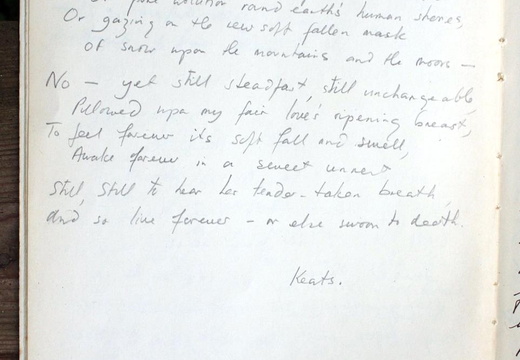 Of pure ablution round earth's human shores,
Or gazing on the new soft fallen mask
Of snow upon the mountains and the moors —
No — yet still steadfast, still unchangeable,
Pillowed upon my fair love's ripening breast,
To feel forever its soft fall and swell,
Awake forever in a sweet unrest
Still, still to hear her tender-taken breath,
And so live forever — or else swoon to death.
Keats.